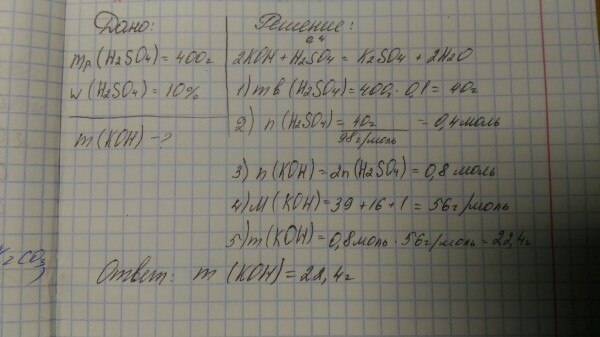 Дано:
mр (H2SO4) = 400г
w (H2SO4) = 10%
m (KOH) - ?
Решение:
0,4
2KOH + H2SO4 = K2SO4 + 2H2O
1) mв (H2SO4) = 400г · 0,1 = 40г
2) n (H2SO4) = 40г / 98г/моль = 0,4 моль
3) n (KOH) = 2n (H2SO4) = 0,8 моль
4) M (KOH) = 39 + 16 + 1 = 56 г/моль
5) m (KOH) = 0,8 моль · 56 г/моль = 22,4г
Ответ: m (KOH) = 22,4г
2CO3